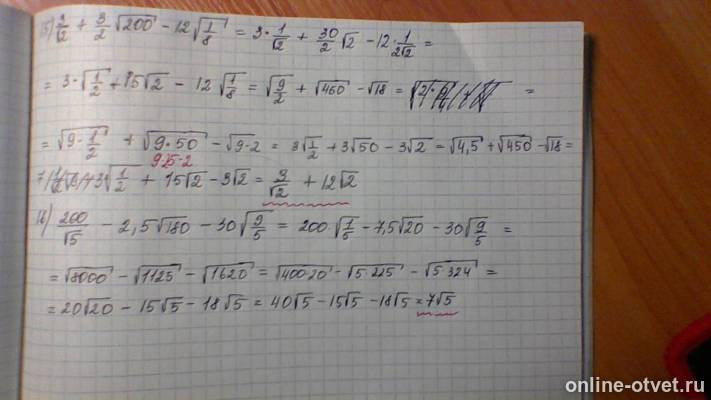 15) 3/√2 + 3/2 √200 − 12√1/8 = 3·1/√2 + 30/2 √2 − 12·1/2√2 =
= 3·√1/2 + 15√2 − 12√1/8 = √9/2 + √450 − √18 = =
= √9·1/2 + √9·50 − √9·2 = 3√1/2 + 3√50 − 3√2 = √4,5 + √450 − √18 =
9·25·2
3√1/2 + 15√2 − 3√2 = 3/√2 + 12√2
16) 200/√5 − 2,5√180 − 30√9/5 = 200·√1/5 − 7,5√20 − 30√9/5 =
= √8000 − √1125 − √1620 = √400·20 − √5·225 − √5·324 =
= 20√20 − 15√5 − 18√5 = 40√5 − 15√5 − 18√5 = 7√5
online-otvet.ru